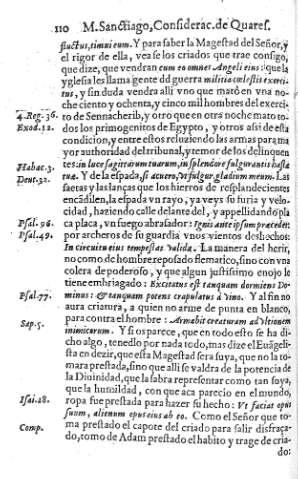 110 M. Sanctiago, Considerac. de Quares.
fluctus, timui eum. Y para saber la Magestad del Señor, y
el rigor de ella, vea se los criados que trae consigo,
que dize, que vendran cum eo omnes Angeli eius: que la
yglesia les llama gente de guerra militia cœlestis exerci-
tus, y sin duda vendra alli vno que matò en vna no-
che ciento y ochenta, y cinco mil hombres del exerci-
4. Reg. 36. to de Sennacherib, y otro que en otra noche mato to-
Exod. 12. dos los primogenitos de Egypto, y otros assi de esta
condicion, y entre estos reluziendo las armas para ma
yor authoridad del tribunal, y temor de los delinquen
Habac. 3. tes: in luce sagittarum tuarum, in splendore fulgurantis hasta
Deut. 32. tuæ. Y de la espada, si acuero, vt fulgur gladium meum. Las
saetas, y las lanças que los hierros de resplandecientes
encādilen, la espada vn rayo, ya veys su furia y velo-
cidad, haziendo calle delante del, y appellidando pla
Psal. 96. ca placa, vn fuego abrasador: Ignis ante ipsum precedet:
Psal. 49. por archeros de su guardia vnos vientos deshechos:
In circuitu eius tempestas valida. La manera del herir,
no como de hombre reposado flematico, sino con vna
colera de poderoso, y que algun justissimo enojo le
tiene embriagado: Excitatus est tanquam dormiens Do-
Psal. 77. minus: & tanquam potens crapulatus à vino. Y al fin no
aura criatura, a quien no arme de punta en blanco,
para contra el hombre: Armabit creaturam ad vltionem
Sap. 5. inimicorum. Y si os parece, que en todo esto se ha di-
cho algo, tenedlo por nada todo, mas dize el Euāgeli-
sta en dezir, que esta Magestad sera suya, que no la to-
mara prestada, sino que alli se valdra de la potencia de
la Diuinidad, que la sabra representar como tan suya,
que la humildad, con que aca parecio en el mundo,
Isai. 28. ropa fue prestada para hazer su hecho: Vt faciat opus
suum, alienum opus eius ab eo. Como el Señor que to-
Comp. ma prestado el capote del criado para salir disfraça-
do, como de Adam prestado el habito y trage de cria-
do: